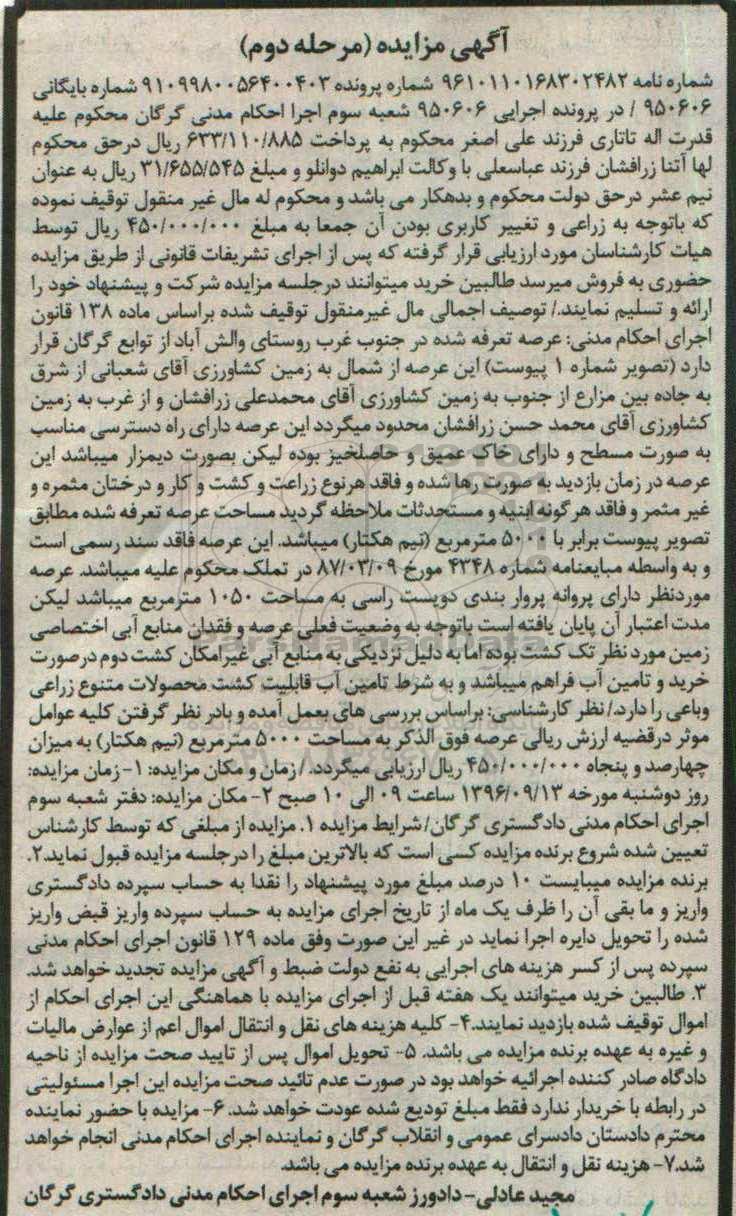 آگهی مزایده (مرحله دوم)
شماره نامه ۹۶۱۰۱۱۰۱۶۸۳۰۲۴۸۲ شماره پرونده ۹۱۰۹۹۸۰۰۵۶۴۰۰۴۰۳ شماره بایگانی
۹۵۰۶۰۶ / در پرونده اجرایی ۹۵۰۶۰۶ شعبه سوم اجرا احکام مدنی گرگان محکوم علیه
قدرت اله تاتاری فرزند علی اصغر محکوم به پرداخت ۶۳۳/۱۱۰/۸۸۵ ریال درحق محکوم
لها آتنا زرافشان فرزند عباسعلی با وکالت ابراهیم دوانلو و مبلغ ۳۱/۶۵۵/۵۴۵ ریال به عنوان
نیم عشر درحق دولت محکوم و بدهکار می باشد و محکوم له مال غیر منقول توقیف نموده
که باتوجه به زراعی و تغییر کاربری بودن آن جمعا به مبلغ ۴۵۰/۰۰۰/۰۰۰ ریال توسط
هیات کارشناسان مورد ارزیابی قرار گرفته که پس از اجرای تشریفات قانونی از طریق مزایده
حضوری به فروش میرسد طالبین خرید میتوانند درجلسه مزایده شرکت و پیشنهاد خود را
ارائه و تسلیم نمایند./ توصیف اجمالی مال غیرمنقول توقیف شده براساس ماده ۱۳۸ قانون
اجرای احکام مدنی: عرصه تعرفه شده در جنوب غرب روستای والش آباد از توابع گرگان قرار
دارد (تصویر شماره ۱ پیوست) این عرصه از شمال به زمین کشاورزی آقای شعبانی از شرق
به جاده بین مزارع از جنوب به زمین کشاورزی آقای محمدعلی زرافشان و از غرب به زمین
کشاورزی آقای محمد حسن زرافشان محدود میگردد این عرصه دارای راه دسترسی مناسب
به صورت مسطح و دارای خاک عمیق و حاصلخیز بوده لیکن بصورت دیمزار میباشد این
عرصه در زمان بازدید به صورت رها شده و فاقد هرنوع زراعت و کشت و کار و درختان مثمره و
غیر مثمر و فاقد هر گونه ابنیه و مستحدثات ملاحظه گردید مساحت عرصه تعرفه شده مطابق
تصویر پیوست برابر با ۵۰۰۰ مترمربع (نیم هکتار) میباشد. این عرصه فاقد سند رسمی است
و به واسطه مبایعنامه شماره ۴۳۴۸ مورخ ۸۷/۰۳/۰۹ در تملک محکوم علیه میباشد. عرصه
موردنظر دارای پروانه پروار بندی دویست راسی به مساحت ۱۰۵۰ مترمربع میباشد لیکن
مدت اعتبار آن پایان یافته است باتوجه به وضعیت فعلی عرصه و فقدان منابع آبی اختصاصی
زمین مورد نظر تک کشت بوده اما به دلیل نزدیکی به منابع آبی غیرامکان کشت دوم درصورت
خرید و تامین آب فراهم میباشد و به شرط تامین آب قابلیت کشت محصولات متنوع زراعی
وباعی را دارد./ نظر کارشناسی: براساس بررسی های بعمل آمده و بادر نظر گرفتن کلیه عوامل
موثر درقضیه ارزش ریالی عرصه فوق الذکر به مساحت ۵۰۰۰ مترمربع (نیم هکتار) به میزان
چهارصد و پنجاه ۴۵۰/۰۰۰/۰۰۰ ریال ارزیابی میگردد. / زمان و مکان مزایده: ۱- زمان مزایده:
روز دوشنبه مورخه ۱۳۹۶/۰۹/۱۳ ساعت ۰۹ الی ۱۰ صبح ۲- مکان مزایده: دفتر شعبه سوم
اجرای احکام مدنی دادگستری گرگان/ شرایط مزایده ۱. مزایده از مبلغی که توسط کارشناس
تعیین شده شروع برنده مزایده کسی است که بالاترین مبلغ را درجلسه مزایده قبول نماید.۲.
برنده مزایده میبایست ۱۰ درصد مبلغ مورد پیشنهاد را نقدا به حساب سپرده دادگستری
واریز و ما بقی آن را ظرف یک ماه از تاریخ اجرای مزایده به حساب سپرده واریز قبض واریز
شده را تحویل دایره اجرا نماید در غیر این صورت وفق ماده ۱۲۹ قانون اجرای احکام مدنی
سپرده پس از کسر هزینه های اجرایی به نفع دولت ضبط و آگهی مزایده تجدید خواهد شد.
۳. طالبین خرید میتوانند یک هفته قبل از اجرای مزایده با هماهنگی این اجرای احکام از
اموال توقیف شده بازدید نمایند.۴- کلیه هزینه های نقل و انتقال اموال اعم از عوارض مالیات
و غیره به عهده برنده مزایده می باشد. ۵- تحویل اموال پس از تایید صحت مزایده از ناحیه
دادگاه صادر کننده اجرائیه خواهد بود در صورت عدم تائید صحت مزایده این اجرا مسئولیتی
در رابطه با خریدار ندارد فقط مبلغ تودیع شده عودت خواهد شد. ۶- مزایده با حضور نماینده
محترم دادستان دادسرای عمومی و انقلاب گرگان و نماینده اجرای احکام مدنی انجام خواهد
شد.۷- هزینه نقل و انتقال به عهده برنده مزایده می باشد.
مجید عادلی- دادورز شعبه سوم اجرای احکام مدنی دادگستری گرگان